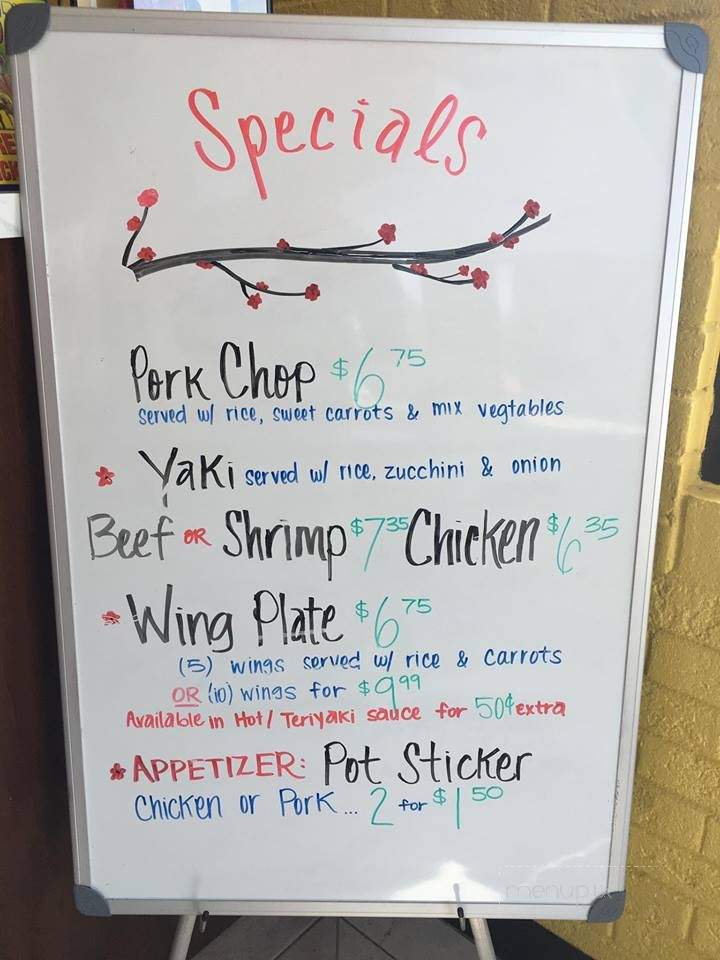 Specials
Pork Chop $6 75
served w/ rice, sweet carrots & mix vegtables
Yaki served w/ rice, zucchini & onion
Beef OR Shrimp $7 35 Chicken $6 35
Wing Plate $6 75
(5) wings served w/ rice & carrots
OR (10) wings for $9 99
Available in Hot/ Teriyaki sauce for 50¢ extra
APPETIZER: Pot Sticker
Chicken or Pork... 2 for $1 50